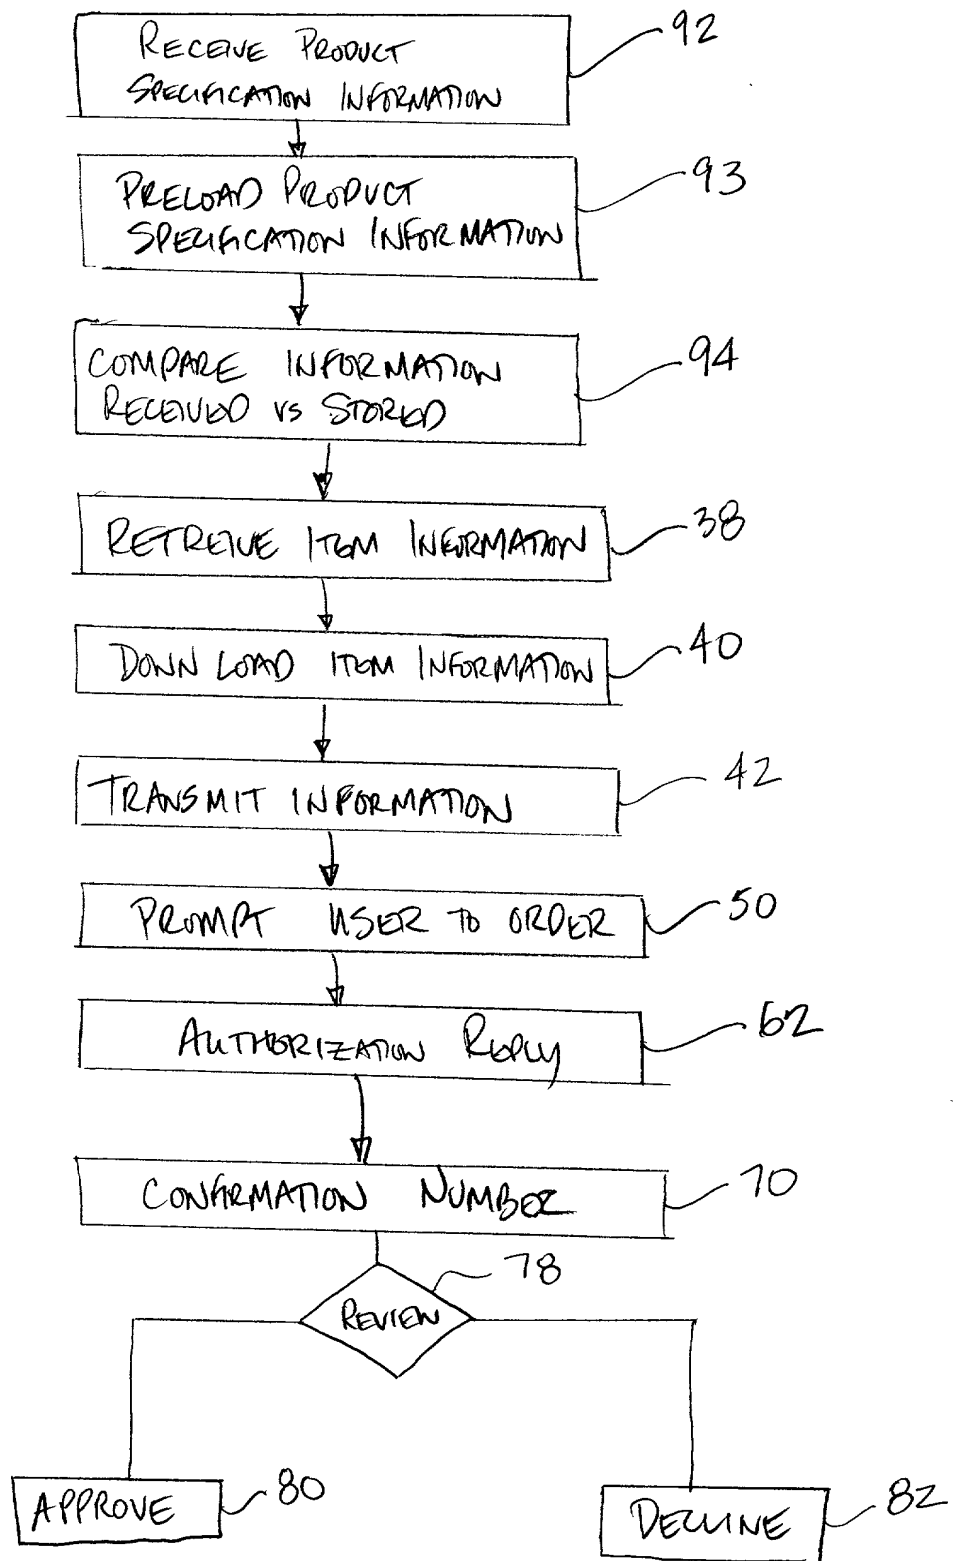 RECEIVE PRODUCT 92
SPECIFICATION INFORMATION
PRELOAD PRODUCT 93
SPECIFICATION INFORMATION
COMPARE INFORMATION 94
RECEIVED vs STORED
RETREIVE ITEM INFORMATION 38
DOWN LOAD ITEM INFORMATION 40
TRANSMIT INFORMATION 42
PROMPT USER TO ORDER 50
AUTHORIZATION REPLY 62
CONFIRMATION NUMBER 70
REVIEW 78
APPROVE 80
DECLINE 82